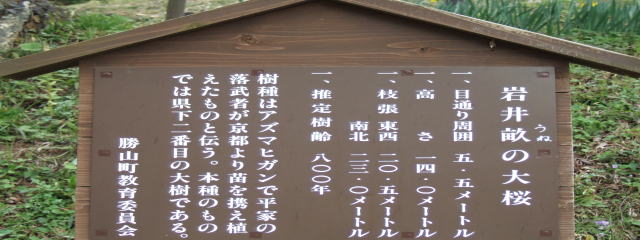 岩井畝の大桜
うね
一、目通り周囲 五・五メートル
一、高 さ 一四・〇メートル
一、枝張 東西 二〇・五メートル
南北 二三・〇メートル
一、推定樹齢 八〇〇年
樹種はアズマヒガンで平家の
落武者が京都より苗を携え植
えたものと伝う。本種のもの
では県下二番目の大樹である。
勝山町教育委員会